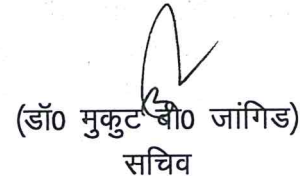 (डॉ0 मुकुट बी0 जांगिड)
सचिव